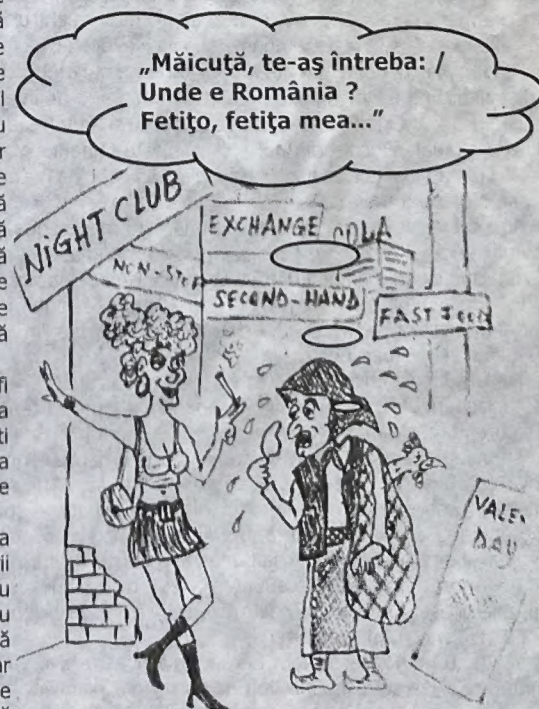 „Măicuţă, te-aş întreba: /
Unde e România ?
Fetiţo, fetiţa mea...”
NiGHT CLUB
EXCHANGE
NON-STOP
SECOND-HAND
FAST FOOD
VALE
DAY